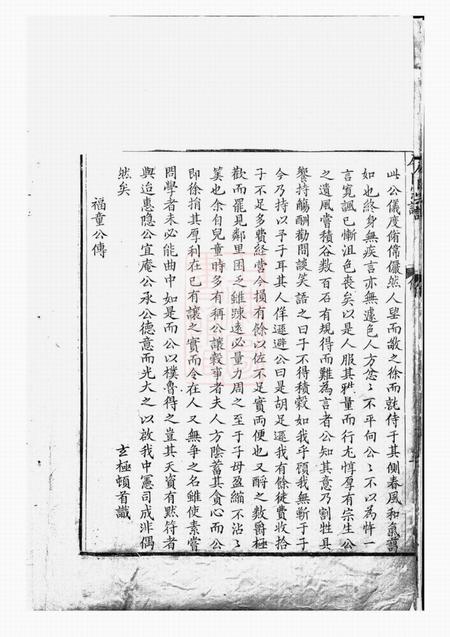 此公儀度脩偉儼然人望而敬之徐而就侍于其側春風和氣藹
如也終身無疾言亦無遽色人方忿〻不平向公〻不以為忤一
言寬諷已慚沮色喪矣以是人服其雅量而行尤惇羣有宗生公
之遺風嘗積谷數百石有規得而難為言者公知其意乃割牲具
饗持觴酬勸問談笑語之曰子不得積穀如我乎顧我無靳于子
今乃持以予子耳其人佯遜避公曰是胡足還我有餘徒費收拾
子不足多費経营今損有餘以佐不足實両便也又酹之数爵極
歡而罷見鄰里困乏雖踈逺必量力周之至于子母盈縮不沾〻
筭也余自兒童時多有稱公讓穀事者夫人方陰蓄其貪心而公
即徐捐其厚利在已有讓之實而令在人又無爭之名雖使素嘗
問學者未必能曲中如是而公以樸魯得之豈其天資有黙符者
與迨惠隐公宜庵公承公德意而光大之以啟我中憲司成非偶
然矣
玄極頓首識
福童公傳